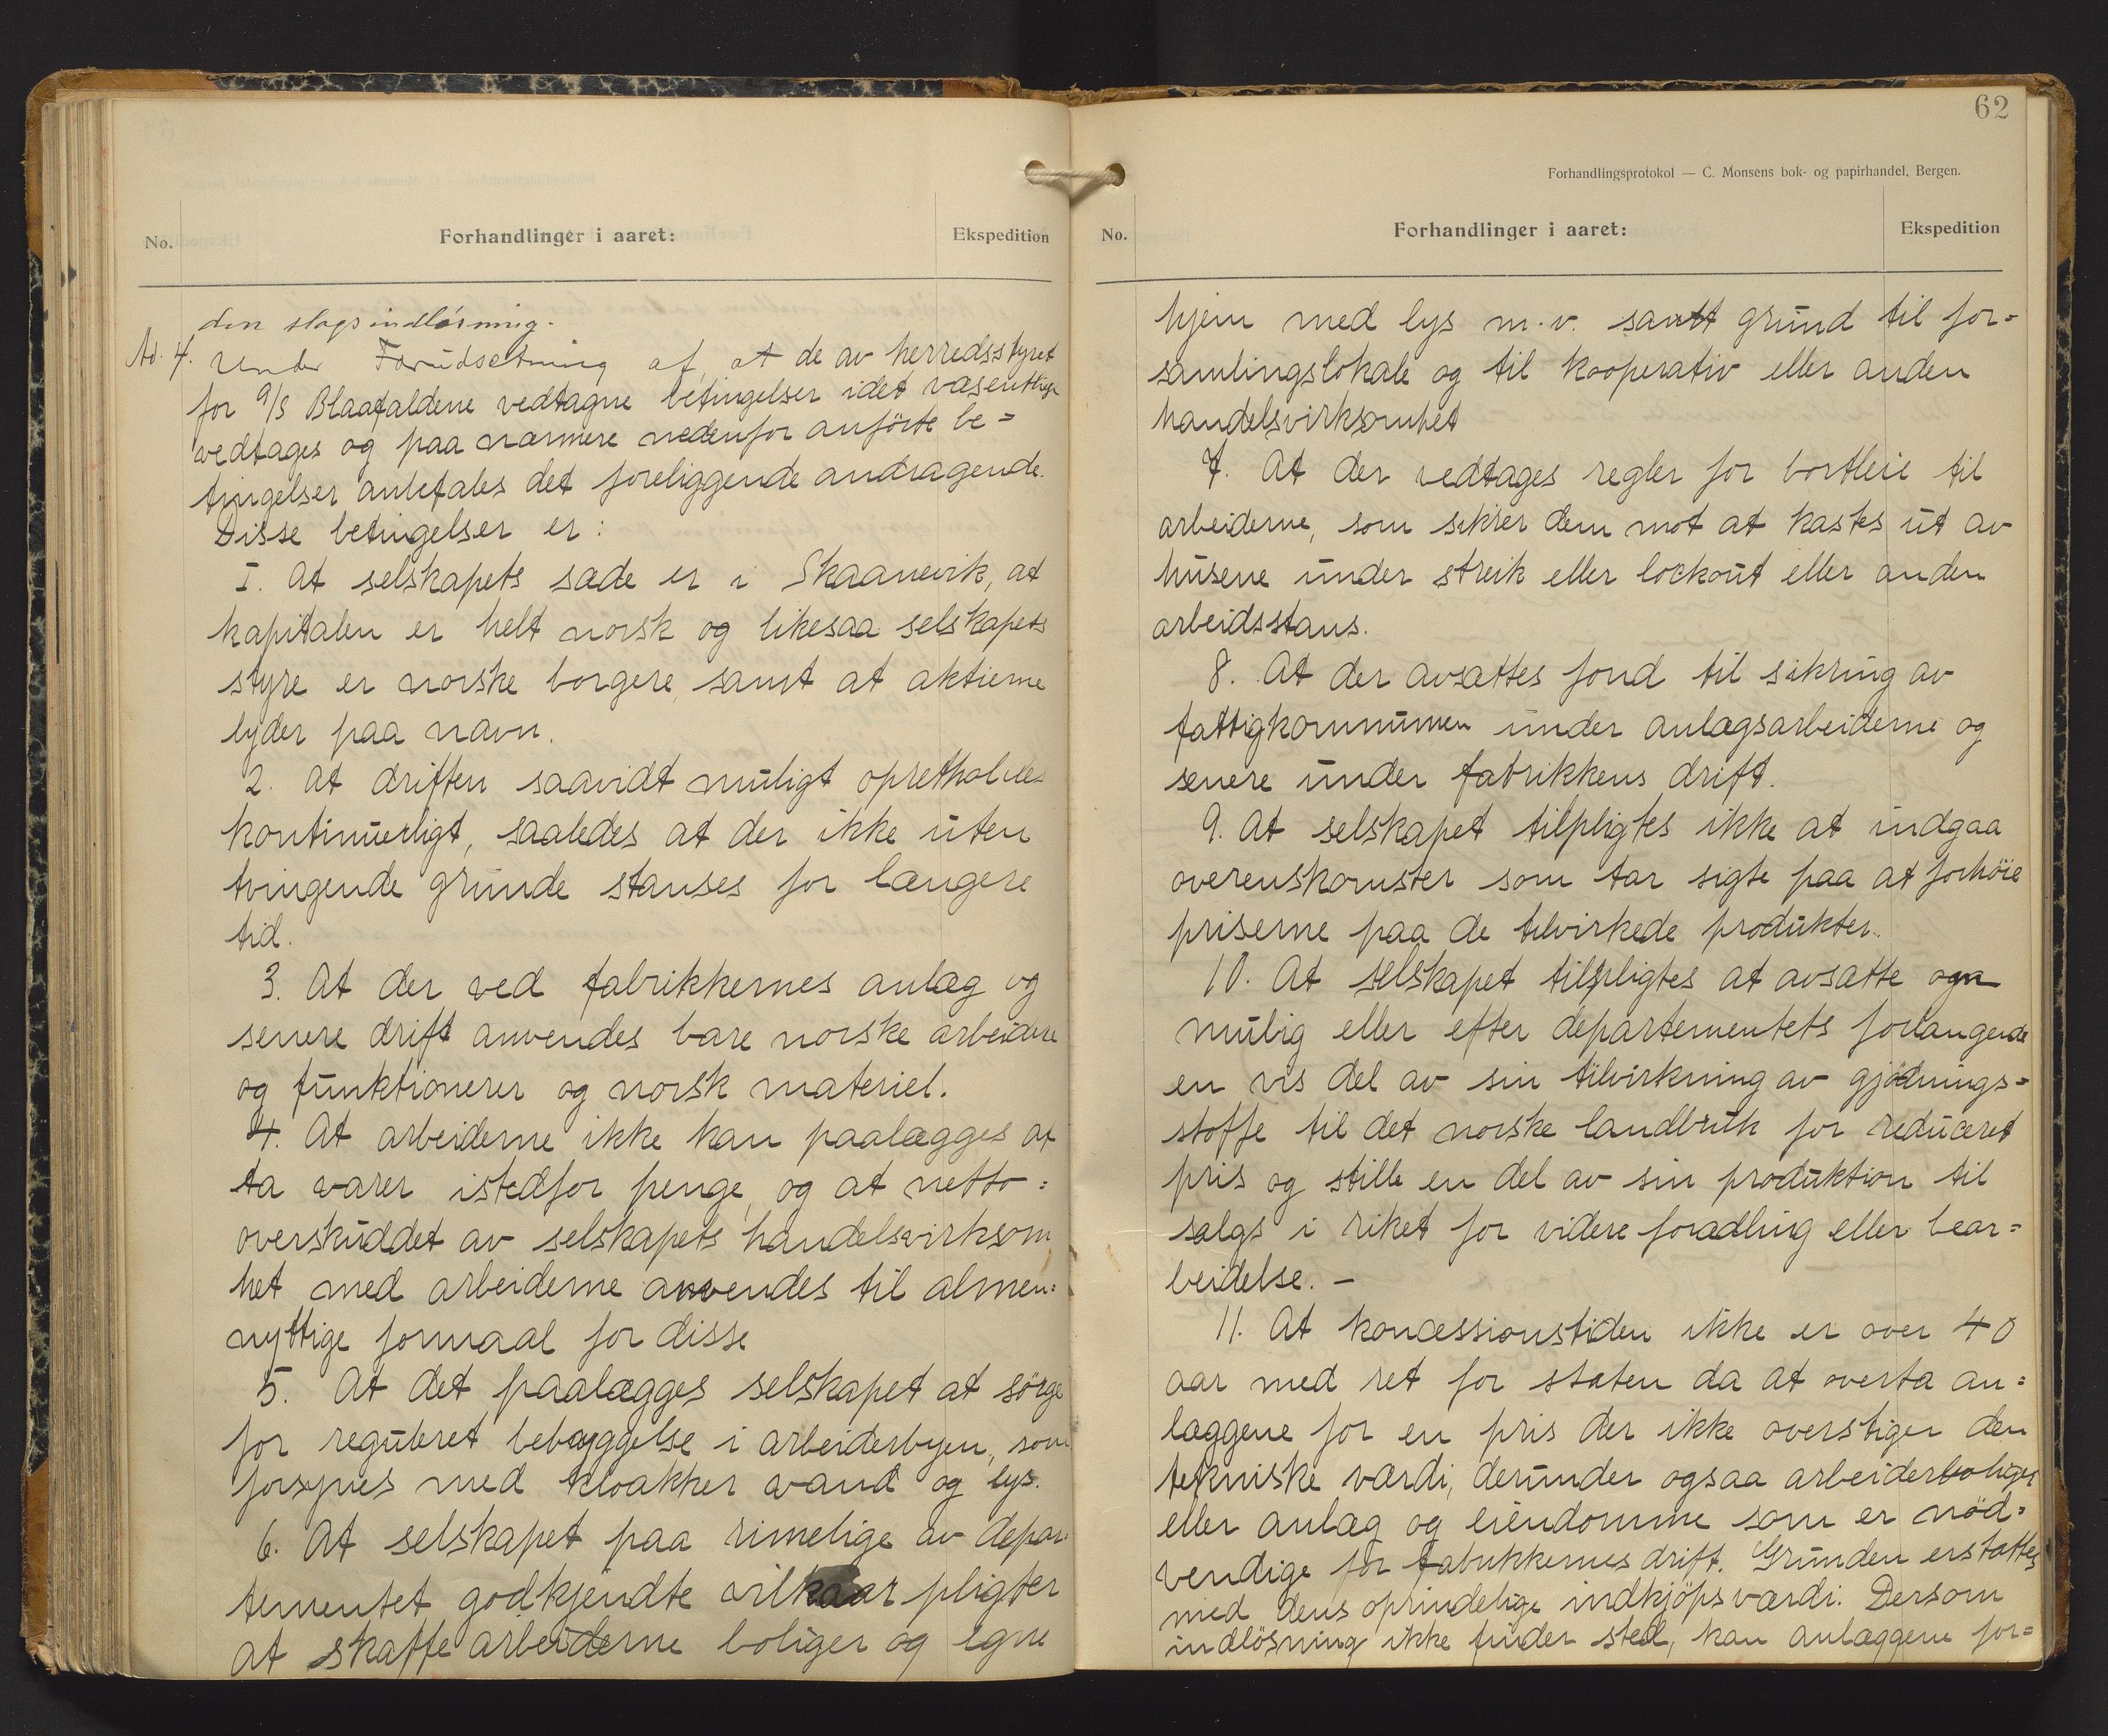 No.
Forhandlinger i aaret:
Ekspedition
den slags indløsning.
Ad. 4. Under Forudsetning af, at de av herredsstyret
for A/S Blaafaldene vedtagne betingelser idet væsentlige
vedtages og paa nærmere nedenfor anförte be=
tingelser anbefales det foreliggende andragende.
Disse betingelser er:
I. At selskapets sæde er i Skaanevik, at
kapitalen er helt norsk og likesaa selskapets
styre er norske borgere, samt at aktierne
lyder paa navn.
2. at driften saavidt muligt opretholdes
kontinuerligt, saaledes at der ikke uten
tvingende grunde stanses for længere
tid.
3. At der ved fabrikkernes anlæg og
senere drift anvendes bare norske arbeidere
og funktionerer og norsk materiel.
4. At arbeiderne ikke kan paalægges at
ta varer istedfor penge, og at netto=
overskuddet av selskapets handelsvirksom
het med arbeiderne anvendes til almen=
nyttige formaal for disse
5. At det paalægges selskapet at sörge
for reguleret bebyggelse i arbeiderbyen, som
forsynes med kloakker vand og lys.
6. At selskapet paa rimelige av depar=
tementet godkjendte vilkaar pligter
at skaffe arbeiderne boliger og egne
62
Forhandlingsprotokol — C. Monsens bok- og papirhandel, Bergen.
No.
Forhandlinger i aaret:
Ekspedition
hjem med lys m.v. samt grund til for=
samlingslokale og til kooperativ eller anden
handelsvirksomhet
7. At der vedtages regler for bortleie til
arbeiderne, som sikrer dem mot at kastes ut av
husene under streik eller lockout eller anden
arbeidsstans.
8. At der avsættes fond til sikring av
fattigkommunen under anlægsarbeiderne og
senere under fabrikkens drift.
9. At selskapet tilpligtes ikke at indgaa
overenskomster som tar sigte paa at forhöie
priserne paa de tilvirkede produkter.
10. At selskapet tilpligtes at avsætte om
mulig eller efter departementets forlangende
en vis del av sin tilvirkning av gjödnings=
stoffe til det norske landbruk for reduceret
pris og stille en del av sin produktion til
salgs i riket for videre forædling eller bear=
beidelse. –
11. At koncessionstiden ikke er over 40
aar med ret for staten da at overta an=
læggene for en pris der ikke overstiger den
tekniske værdi, derunder ogsaa arbeiderboliger
eller anlæg og eiendomme som er nöd=
vendige for fabrikkernes drift. Grunden erstattes
med dens oprindelige indkjöpsværdi. Dersom
indlösning ikke finder sted, kan anlæggene for=